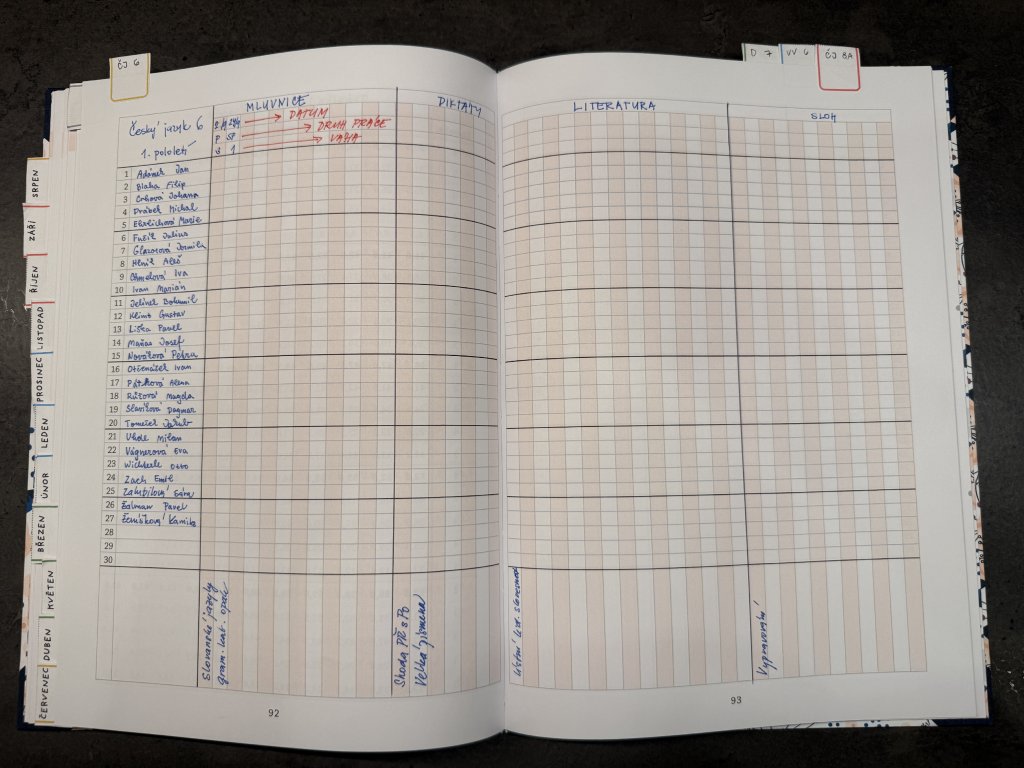 ČJ 6
D 7
VV 6
ČJ 8A
MLUVNICE
DIKTÁTY
LITERATURA
SLOH
Český jazyk 6
DATUM
DRUH PRÁCE
P SP
VÁHA
1. pololetí
1
1 Adámek Jan
2 Blaha Filip
3 Johana
4 Drábek Michal
5 Ehrlichová Marie
6 Fučík Julius
7 Glazarová Jarmila
8 Hlník Aleš
9 Chmelová Iva
10 Ivan Marián
11 Jelínek Bohumil
12 Klimt Gustav
13 Liška Pavel
14 Maňas Josef
15 Nováková Petra
16 Otčenášek Ivan
17 Pátková Alena
18 Růžová Magda
19 Slavíková Dagmar
20 Tomeček Jakub
21 Uhde Milan
22 Vágnerová Eva
23 Wichterle Otto
24 Zach Emil
25 Sára
26 Žalman Pavel
27 Kamila
28
29
30
Slovanské jazyky
gram. opak.
Shoda PŘ s PO
Velká písmena
Ústní lid. slovesnost
Vypravování
92
93
SRPEN
ZÁŘÍ
ŘÍJEN
LISTOPAD
PROSINEC
LEDEN
ÚNOR
BŘEZEN
KVĚTEN
DUBEN
ČERVENEC